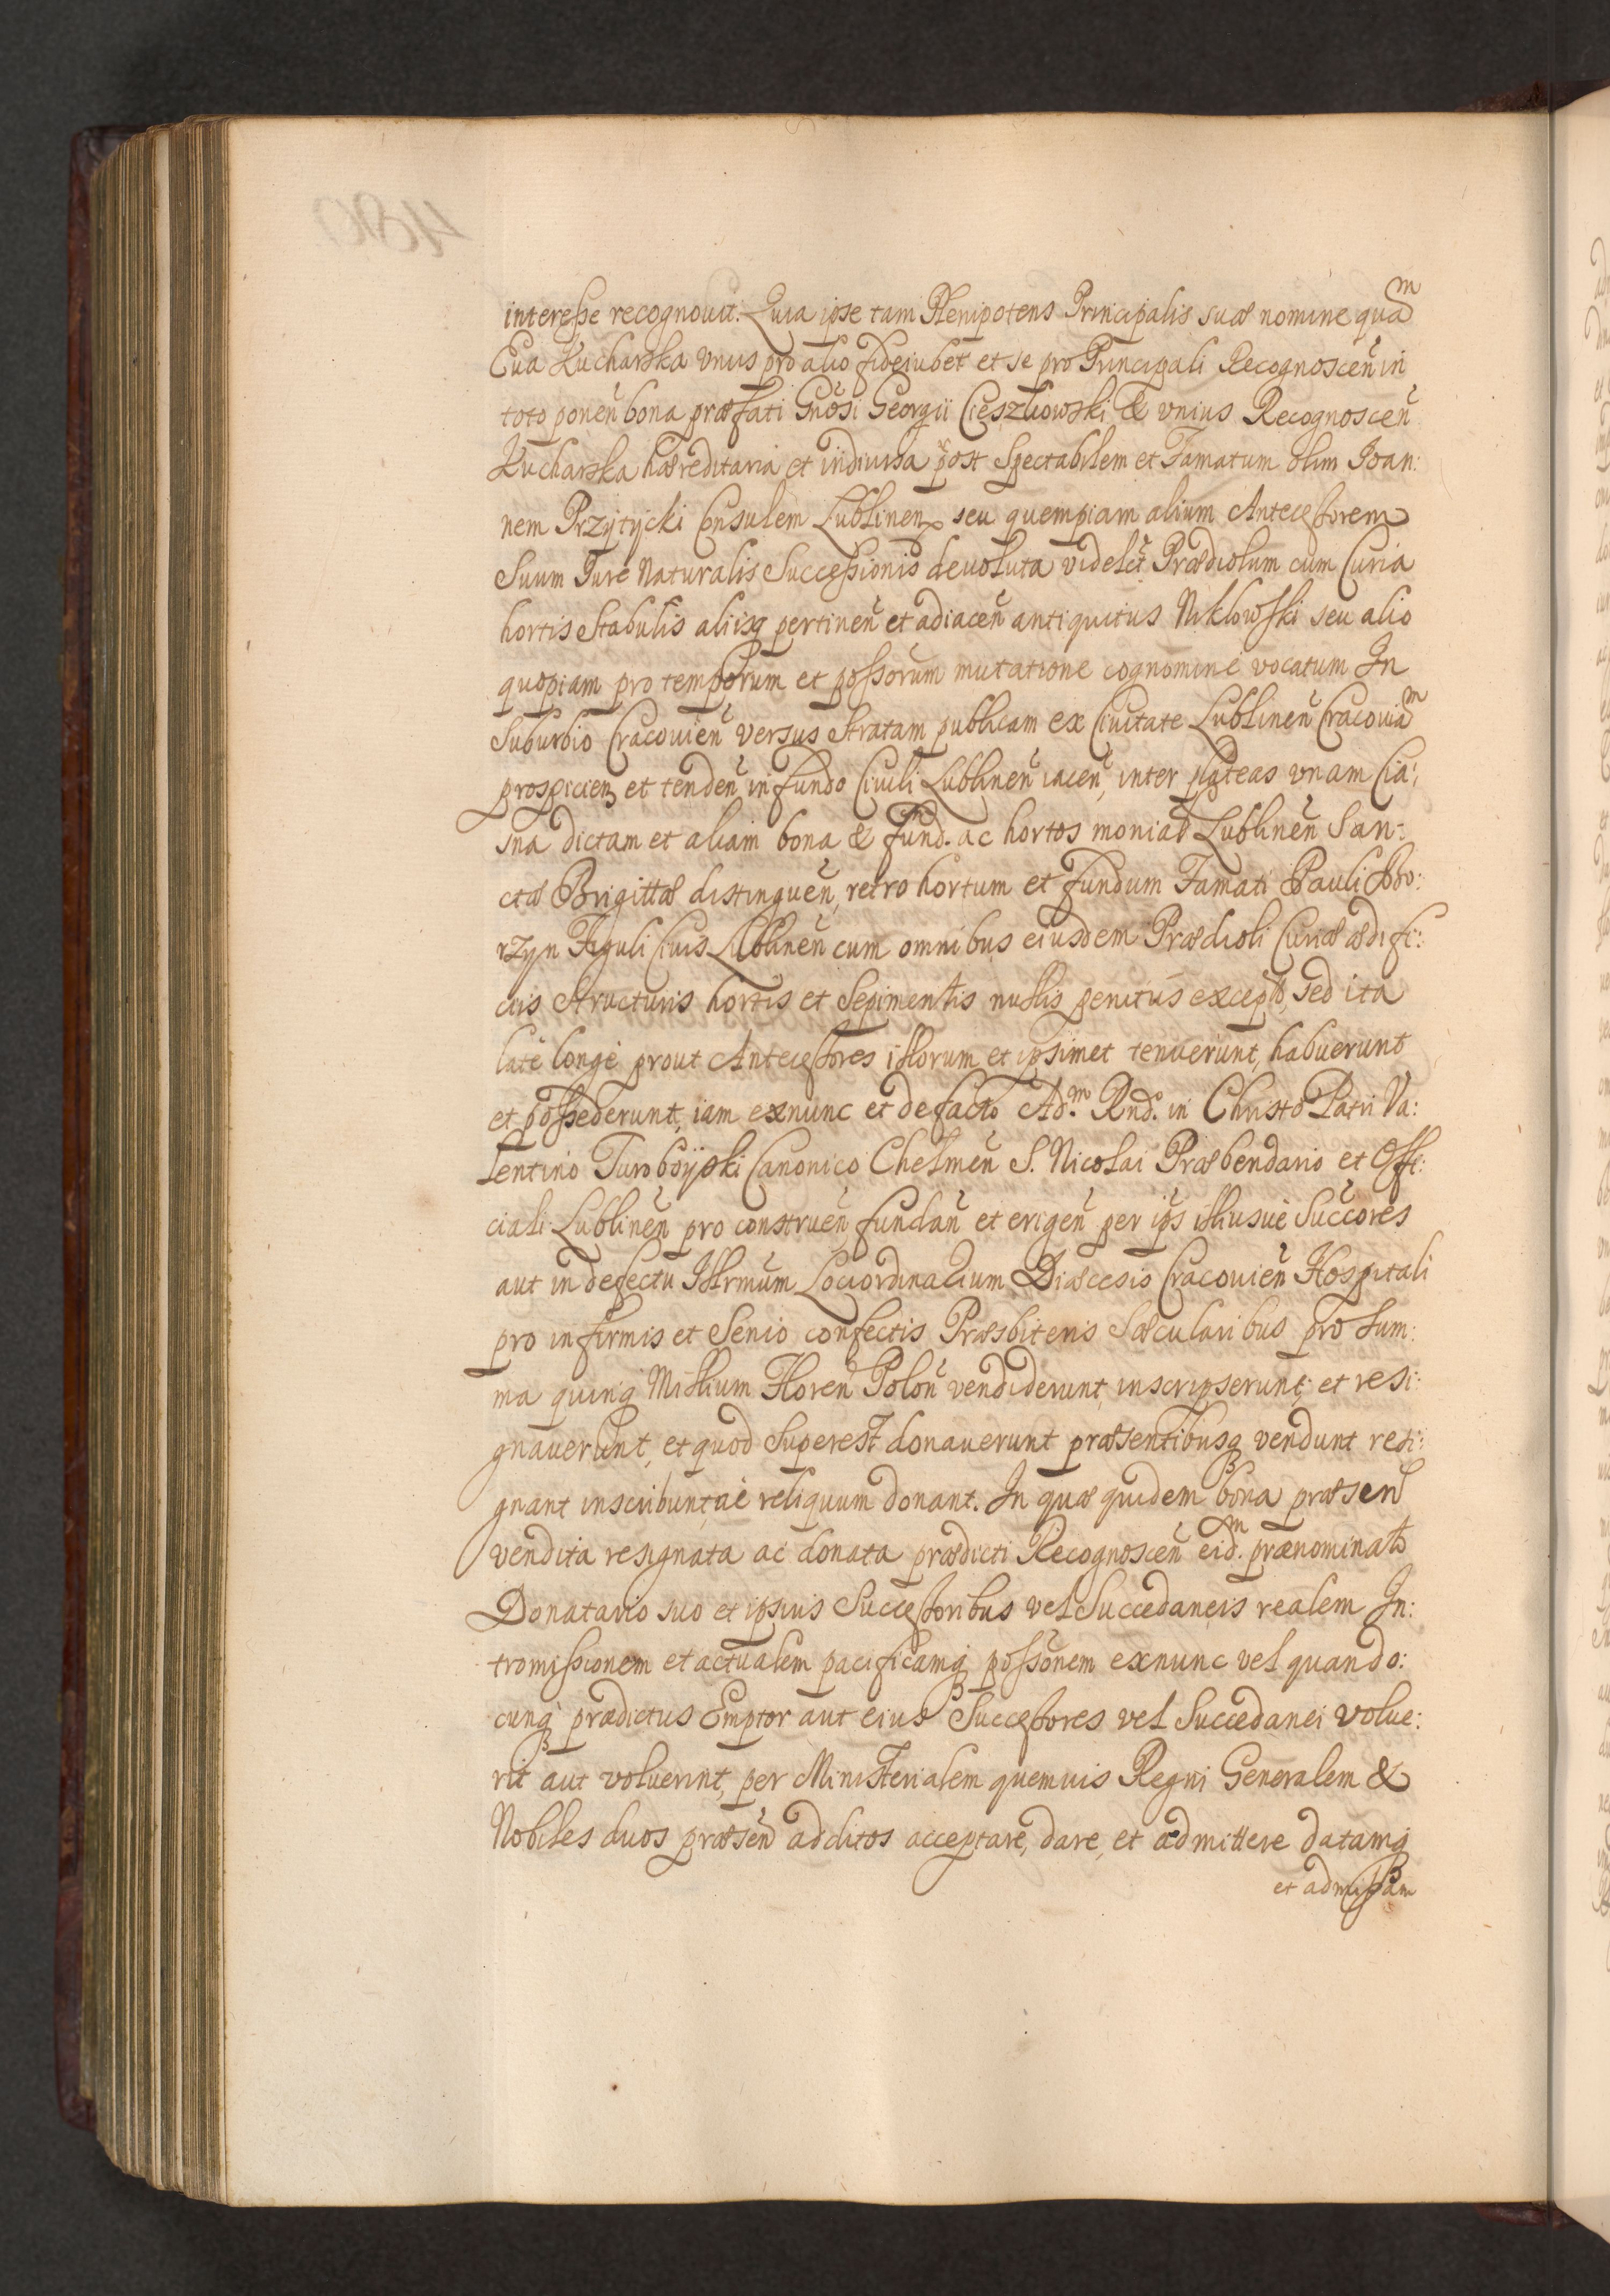 interesse recognouit. Quia ipse tam Plenipotens Principalis suæ nomine quam
Eua Kucharska vnus pro alio fideiubet et se pro Principali Recognosceñ in
toto poneñ bona præfati Gnosi Georgii Cieszkowski & vnius Recognosceñ
Kucharska hæreditaria et indiuisa post Spectabilem et Famatum olim Ioan:
nem Przytycki Consulem Lublinen seu quempiam alium Antecessorem
Suum Iure Naturalis Successionis deuoluta videlct Prædiolum cum Curia
hortis Stabulis aliisq pertineñ et adiaceñ antiquitus Niklowski seu alio
quopiam pro temporum et possorum mutatione cognomine vocatum In
Suburbio Cracouieñ versus Stratam publicam ex Ciuitate Lublineñ Cracouiam
prospicien et tendeñ in fundo Ciuili Lublineñ iaceñ, inter plateas vnam Cia:
sna dictam et aliam bona & fund. ac hortos monial Lublineñ San-
ctæ Brigittæ distingueñ, retro hortum et fundum Famati Pauli Bo:
rzyn Figuli Ciuis Lublineñ cum omnibus eiusdem Prædioli Curiæ ædifi:
ciis Structuris hortis et Sepimentis nullis penitus except, sed ita
latè longè prout Antecessores illorum et ipsimet tenuerunt, habuerunt
et possederunt, iam exnunc et de facto Adm. Rndo. in Christo Patri Va:
lentino Turoboyski Canonico Chelmeñ S. Nicolai Præbendario et Offi:
ciali Lublineñ pro construeñ fundañ et erigeñ per ips illiusue Succores
aut in defectu Illrmum Lociordinalium Diæcesis Cracouieñ Hospitali
pro infirmis et Senio confectis Præsbiteris Sæcularibus pro Sum:
ma quinq Millium Floreñ Poloñ vendiderunt, inscripserunt, et resi:
gnauerunt, et quod Superest donauerunt præsentibusq vendunt resi:
gnant inscribunt, ac reliquum donant. In quæ quidem bona præsen
vendita resignata ac donata prædicti Recognosceñ eidm. prænominato
Donatario suo et ipsius Successoribus vel Succedaneis realem In:
tromissionem et actualem pacificamq possonem exnunc vel quando:
cunq prædictus Emptor aut eius Successores vel Succedanei volue:
rit aut voluerint, per Ministerialem quemuis Regni Generalem &
Nobiles duos præsen additos acceptare, dare, et admittere datamq
et admissam